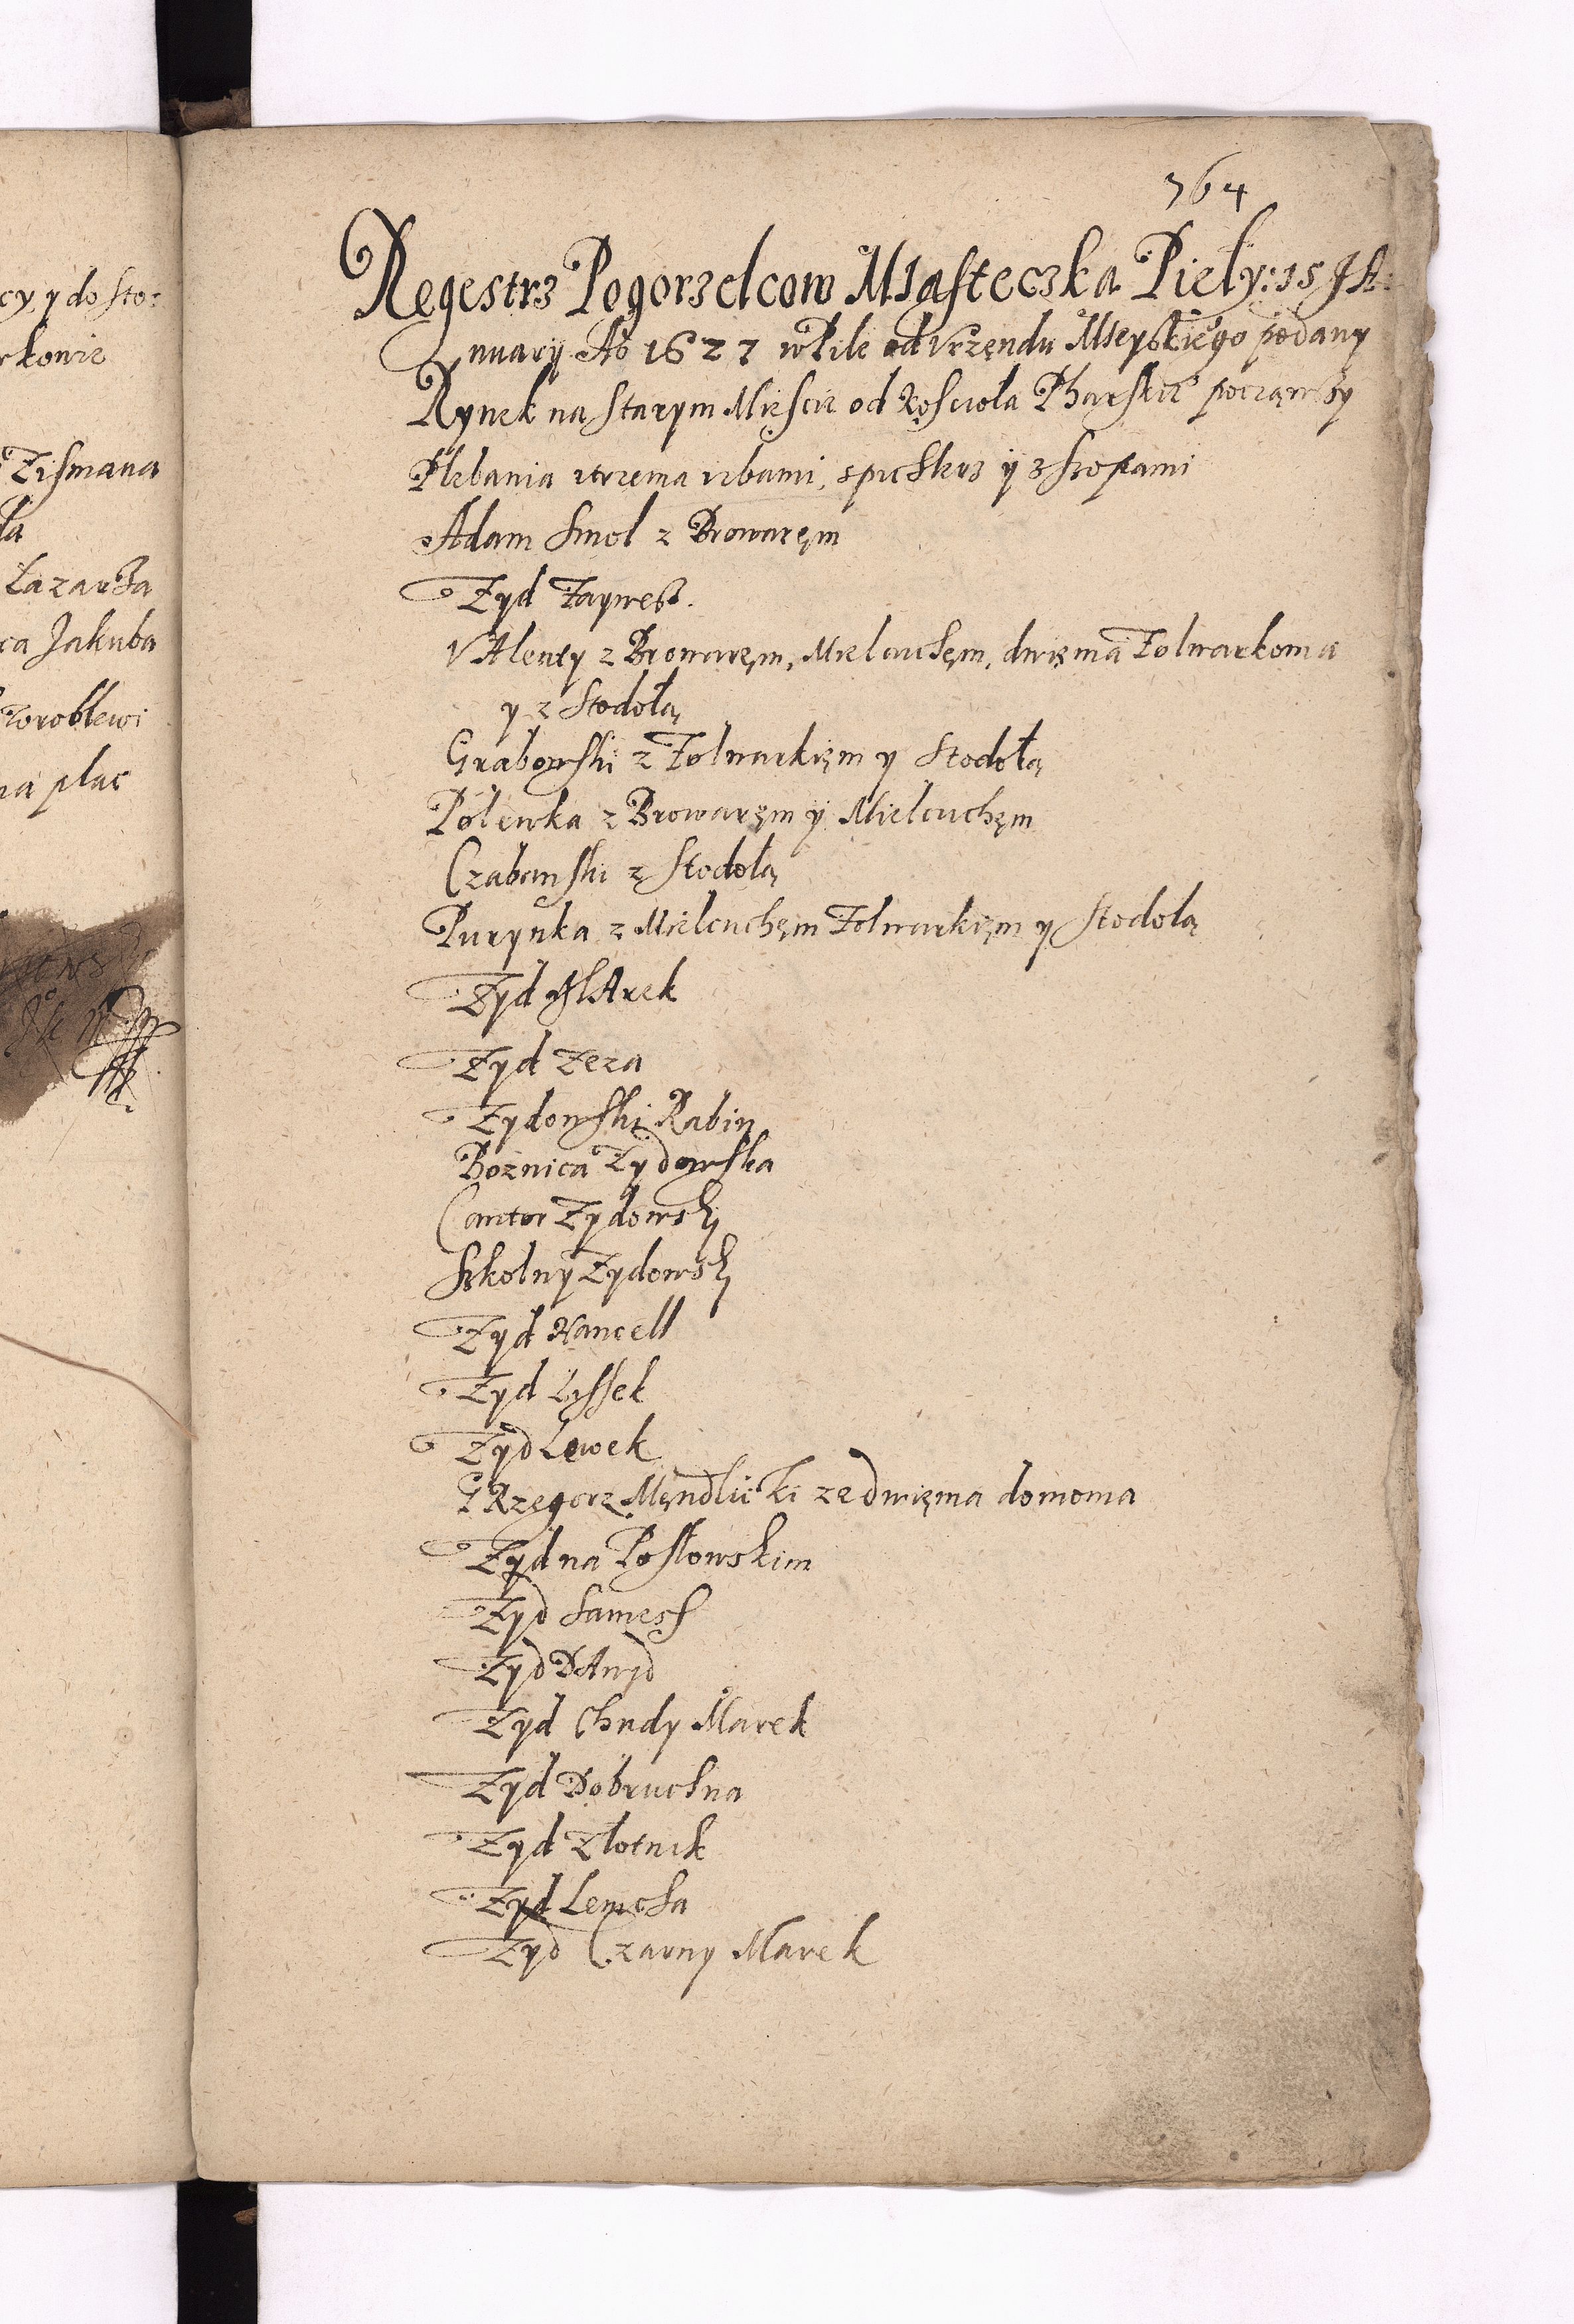 cy, y do sto:
rkowie
Zismana
ła
Łazarza
ca Jakuba
na plac
764
Regestrz Pogorzelcow Miasteczka Pieły: 15 JA:
nuary Aō 1627 w Pile od Vrzendu Mieyskiego podany
Rynek na starym Miescie od Koscioła Pharskie° począwszy
Plebania ztrzema izbami, spichlerz y z szopami
Adam Smol z Browaręm
Zyd Zaywesz.
VAlenty z Browaręm, Mielcuchęm, dwięma Folwarkoma
y z Stodołą
Grabowski z Folwarkięm y Stodołą
Polewka z Browaręm y Mielcuchęm
Czabanski z Stodołą
Purynka z Mielcuchęm Folwarkięm y Stodolą
Zyd MArek
Zyd Zeza
Zydowski Rabin
Boznica Zydowska
Cantor Zydowski
Szkolny Zydowski
Zyd Kancell
Zyd Lyssek
Zyd Lewek
GRzegorz Męndlicki ze dwięma domoma
Zyd na Posłowskim
Zyd Samess
Zyd DAwyd
Zyd Chudy Marek
Zyd Dobruchna
Zyd Złotnik
Zyd Lemcha
Zyd Czarny Marek